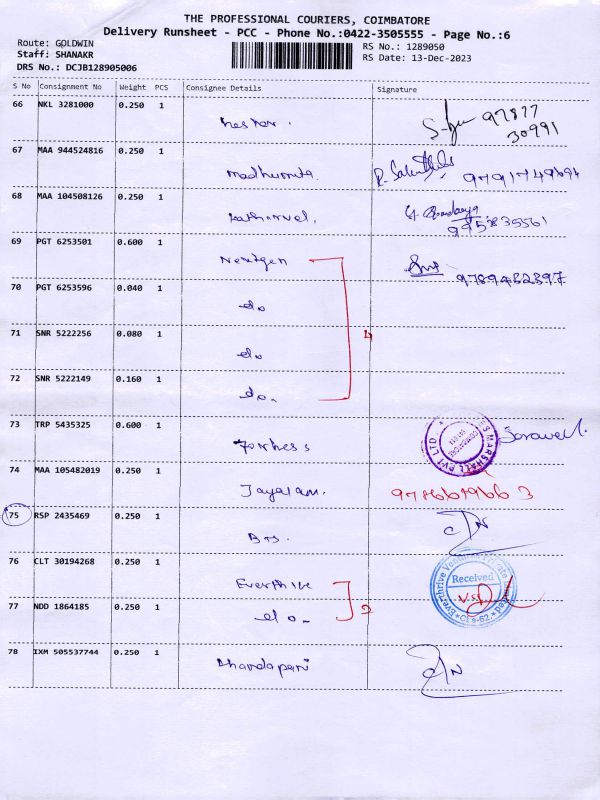 THE PROFESSIONAL COURIERS, COIMBATORE
Delivery Runsheet - PCC - Phone No.:0422-3505555 - Page No.:6
Route: GOLDWIN
Staff: SHANAKR
DRS No.: DCJB128905006
RS No.: 1289050
RS Date: 13-Dec-2023
S No Consignment No Weight PCS Consignee Details Signature
66 NKL 3281000 0.250 1
97877
30991
67 MAA 944524816 0.250 1
Madhumita. 9791749694
68 MAA 104508126 0.250 1
Kathirvel. 9952835561
69 PGT 6253501 0.600 1
Nextgen 9789432397
70 PGT 6253596 0.040 1
do
71 SNR 5222256 0.080 1
do
4
72 SNR 5222149 0.160 1
do.
73 TRP 5435325 0.600 1
Forbess
MARSHALL PVT LTD
74 MAA 105482019 0.250 1
Jayaram. 9786619663
75 RSP 2435469 0.250 1
76 CLT 30194268 0.250 1
Everthive
Received
77 NDD 1864185 0.250 1
do -
2
78 IXM 505537744 0.250 1
Dhandapani